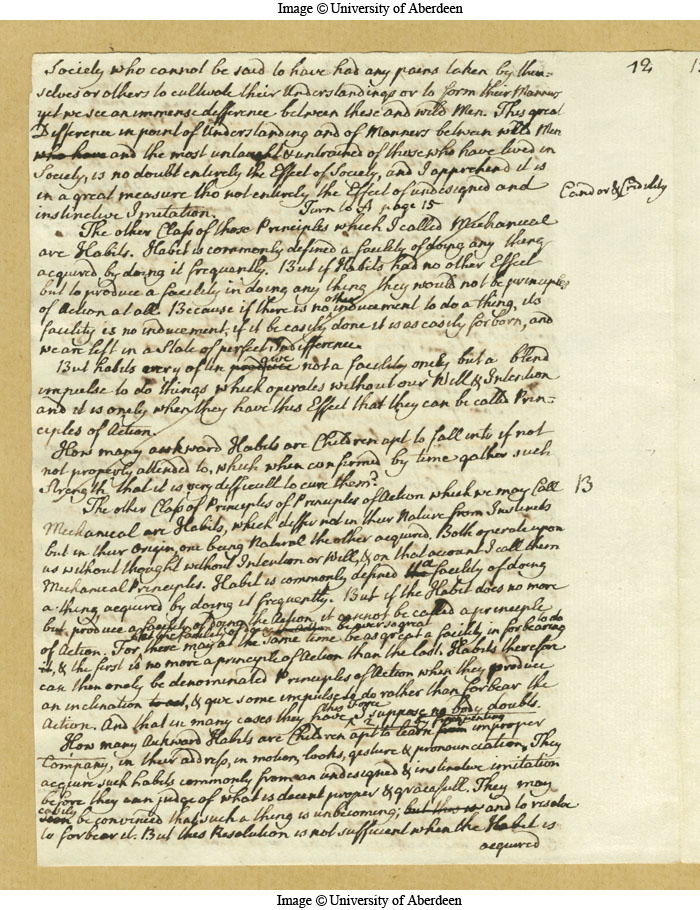 Image © University of Aberdeen
12
Society who cannot be said to have had any pains taken by them=
selves or others to cultivate their Understandings or to form their Manners
yet we see an immense difference between these and wild Men. This great
Difference in point of Understanding and of Manners between wild Men
who have and the most untaught & untrained of those who have lived in
Society, is no doubt entirely the Effect of Society, and I apprehend it is
in a great measure tho not entirely the Effect of undesigned and
instinctive Imitation. Turn to A page 15
Candor & Credulity
The other Class of those Principles which I called Mechanical
are Habits. Habit is commonly defined a facility of doing any thing
acquired by doing it frequently. But if Habits had no other Effect
but to produce a facility in doing any thing they would not be principles
of Action at all. Because if there is no other inducement to do a thing, its
facility is no inducement, if it be easily done it is as easily forborn, and
we are left in a State of perfect Indifference.
But habits every of un produce give not a facility onely but a blind
impulse to do things which operates without our Will & Intention
and it is onely when they have this Effect that they can be called Prin=
ciples of Action.
How many awkward Habits are Children apt to fall into if not
not properly attended to, which when confirmed by time gather such
Strength that it is very difficult to cure them?
13
The other Class of Principles of Principles of Action which we may Call
Mechanical are Habits, which differ not in their Nature from Instincts
but in their Origin, one being Natural the other acquired. Both operate upon
us without thought without Intention or Will, & on that account I call them
Mechanical Principles. Habit is commonly defined the a facility of doing
a thing acquired by doing it frequently. But if the Habit does no more
but produce a facility of doing the Action, it cannot be called a principle
of Action. For there may at the same time be as great a facility in forbearing
it, & the first is no more a principle of Action than the last. Habits therefore
can then onely be denominated Principles of Action when they produce
an inclination to act, & give some impulse to do rather than forbear the
Action. And that in many cases they have this force I suppose no body doubts.
How many Awkward Habits are Children apt to learn from by frequenting improper
Company, in their address, in motion, looks, gesture & pronounciation. They
acquire such habits commonly from an undesigned & instinctive imitation
before they can judge of what is decent proper & gracefull. They may
easily soon be convinced that such a thing is unbecoming; but this is and to resolve
to forbear it. But this Resolution is not sufficient when the Habit is
acquired
Image © University of Aberdeen